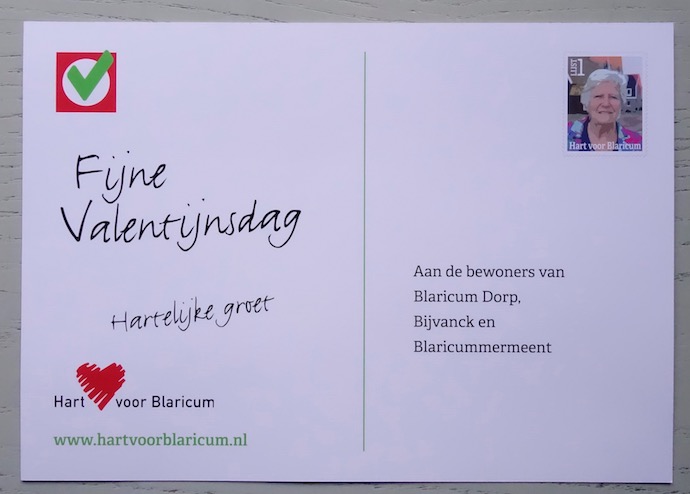 Fijne
Valentijnsdag
Hartelijke groet
Hart voor Blaricum
www.hartvoorblaricum.nl
LIJST 1
Hart voor Blaricum
Aan de bewoners van
Blaricum Dorp,
Bijvanck en
Blaricummermeent